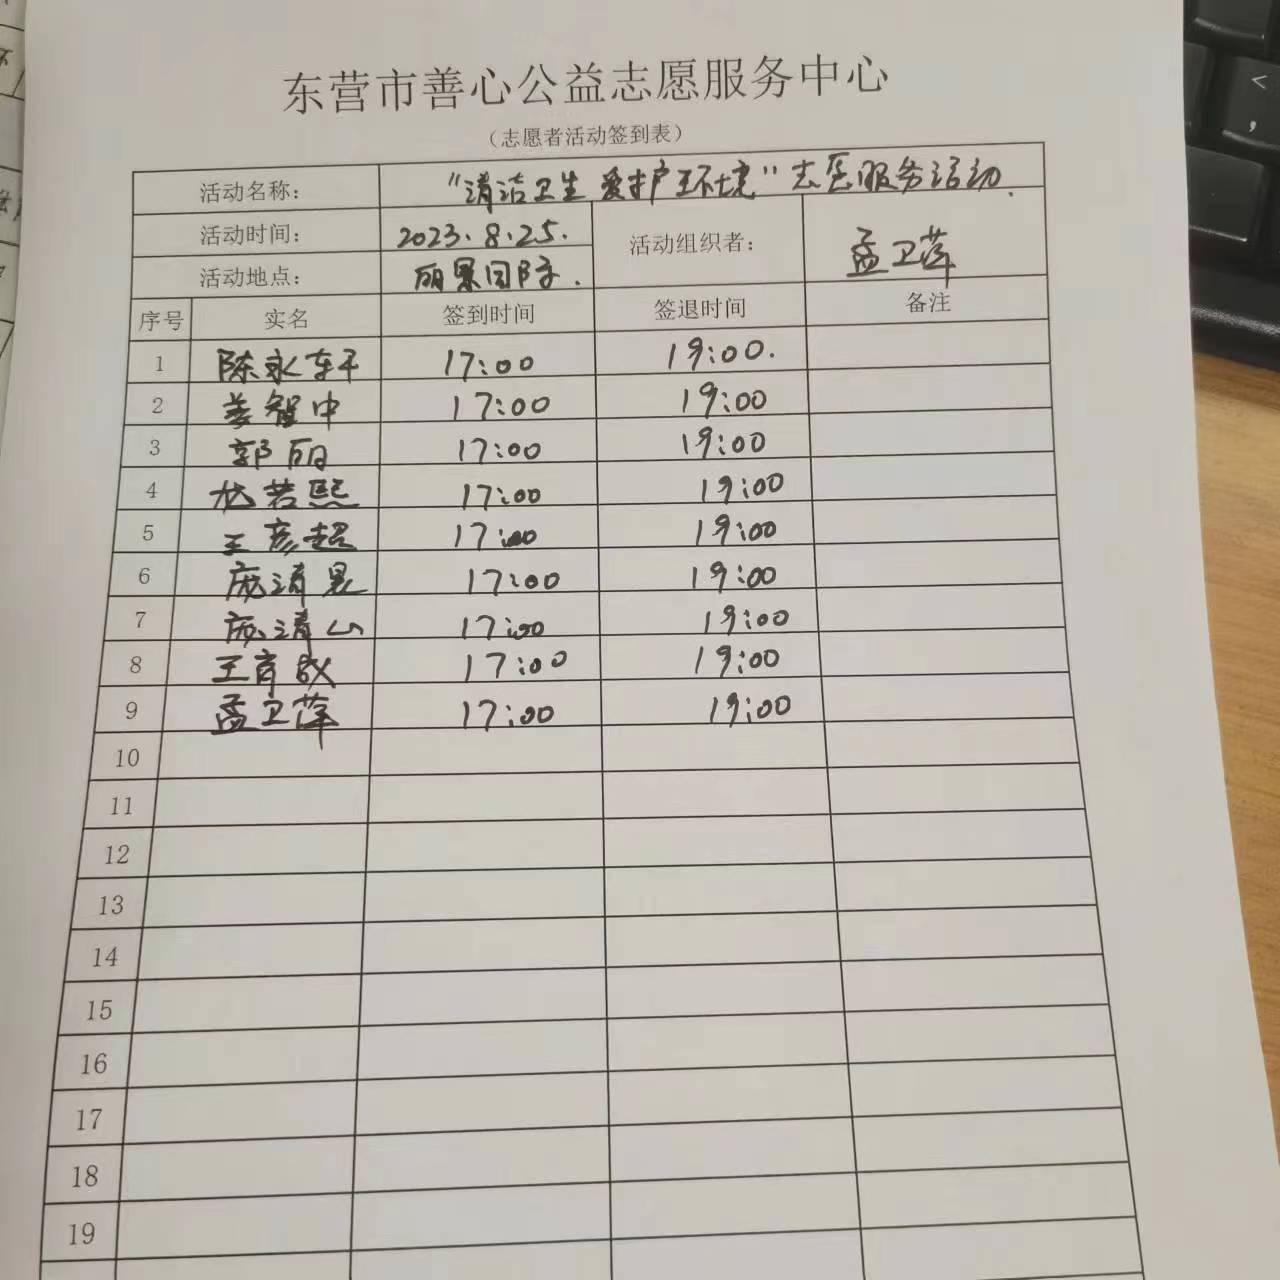 东营市善心公益志愿服务中心
（志愿者活动签到表）
活动名称： “清洁卫生 爱护环境”志愿服务活动.
活动时间： 2023.8.25. 活动组织者： 孟卫萍
活动地点： 丽景园院.
序号 实名 签到时间 签退时间 备注
1 陈永轩 17:00 19:00.
2 姜智中 17:00 19:00
3 郭丽 17:00 19:00
4 若熙 17:00 19:00
5 王彦超 17:00 19:00
6 庞清 17:00 19:00
7 庞清山 17:00 19:00
8 王育 17:00 19:00
9 孟卫萍 17:00 19:00
10
11
12
13
14
15
16
17
18
19